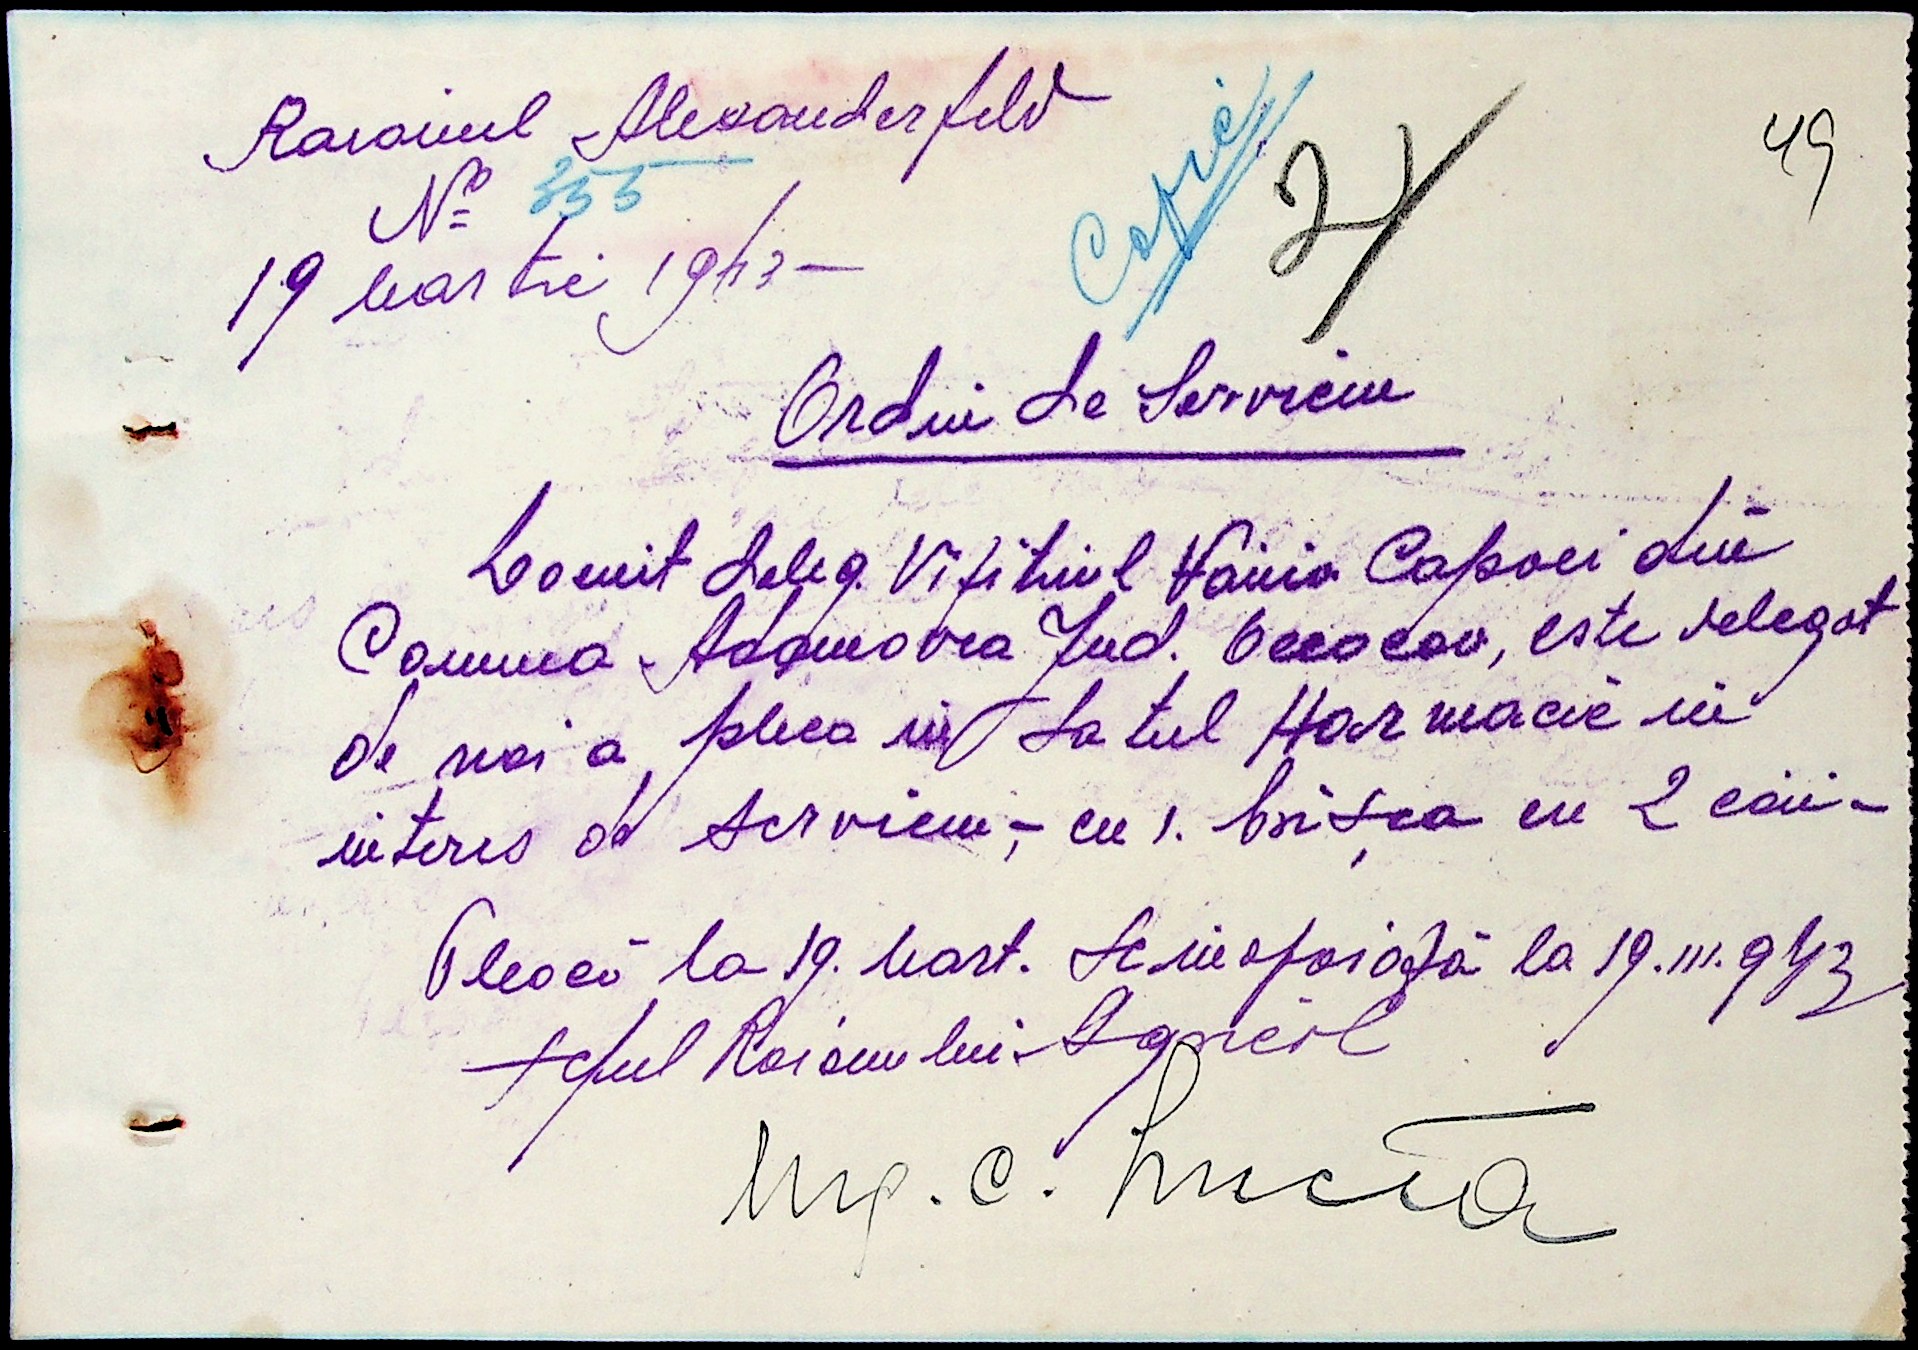 Raionul Alexanderfeld
No 355
19 Martie 1943 —
Copie
49
Ordin de Serviciu
Domit deleg. Vizitiul Vania Capoci din
Comuna Adamovca Jud. Oceacov, este delegat
de noi a pleca în Satul Harmacie în
interes de serviciu, – cu 1. brișca cu 2 cai –
Pleacă la 19. Mart. Se inapoiază la 19.III.943
Șeful Raionului Agricol
Ing. C.